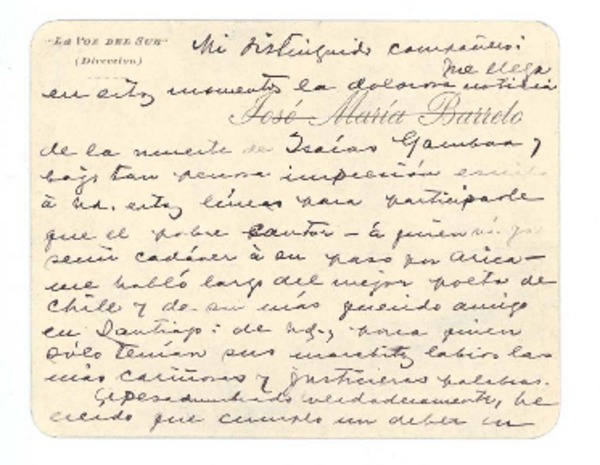 "LA VOZ DEL SUR"
(Direccion)
Mi distinguido compañero:
Me llega
en estos momentos la dolorosa noticia
José María Barreto
de la muerte de Isaías Gamboa y
bajo tan penosa impresión escribo
á Ud. estas líneas para participarle
que el pobre cantor — á quien
semi cadáver á su paso por Arica —
me habló largo del mejor poeta de
Chile y de su más querido amigo
en Santiago: de Ud., para quien
sólo tenían sus marchitos labios las
más cariñosas y justicieras palabras.
Apesadumbrado verdaderamente, he
creido que cumplo un deber